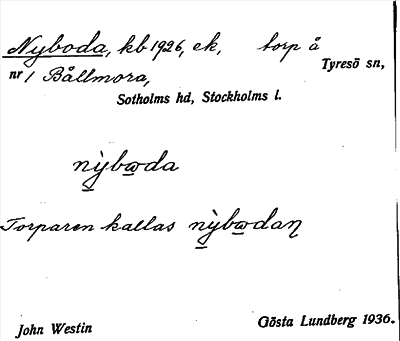 Nyboda, kb 1926, ek, torp å
Tyresö sn,
nr 1 Bållmora,
Sotholms hd, Stockholms l.
nỳbωda
Torparen kallas nỳbωdaꞃ
John Westin
Gösta Lundberg 1936.